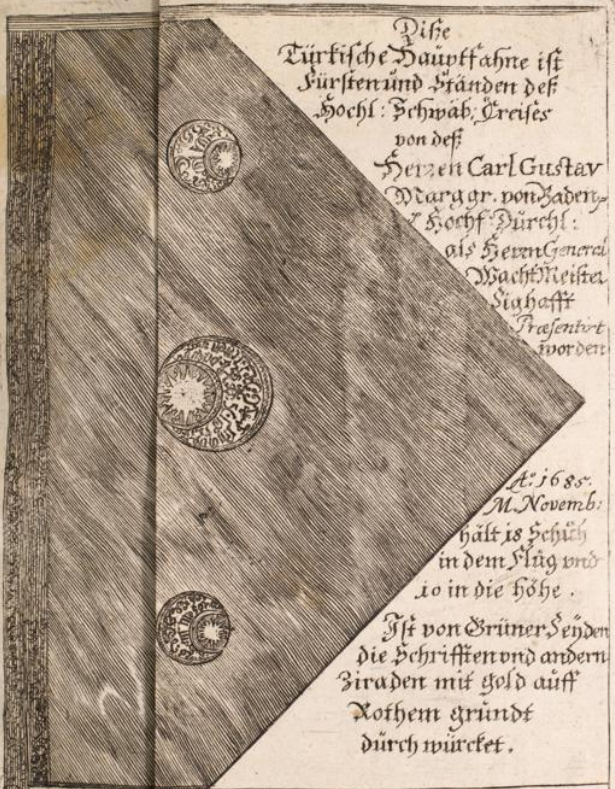 Diße
Türkische Haüptfahne ist
Fürsten ünd Ständen deß
Hochl: Schwäb: Creises
von deß
Herren Carl Gustav
Marggr. von Baden
Hochf Dürchl:
als Herrn General
Wacht Meister
Sighafft
Præsentirt
worden
Aº: 1685.
M. Novemb:
hält 18 Schüh
in dem Flüg vnd
10 in die höhe.
Ist von Grüner Seyden
die Schrifften vnd andern
Ziraden mit gold auff
Rothem gründt
dürch würcket.